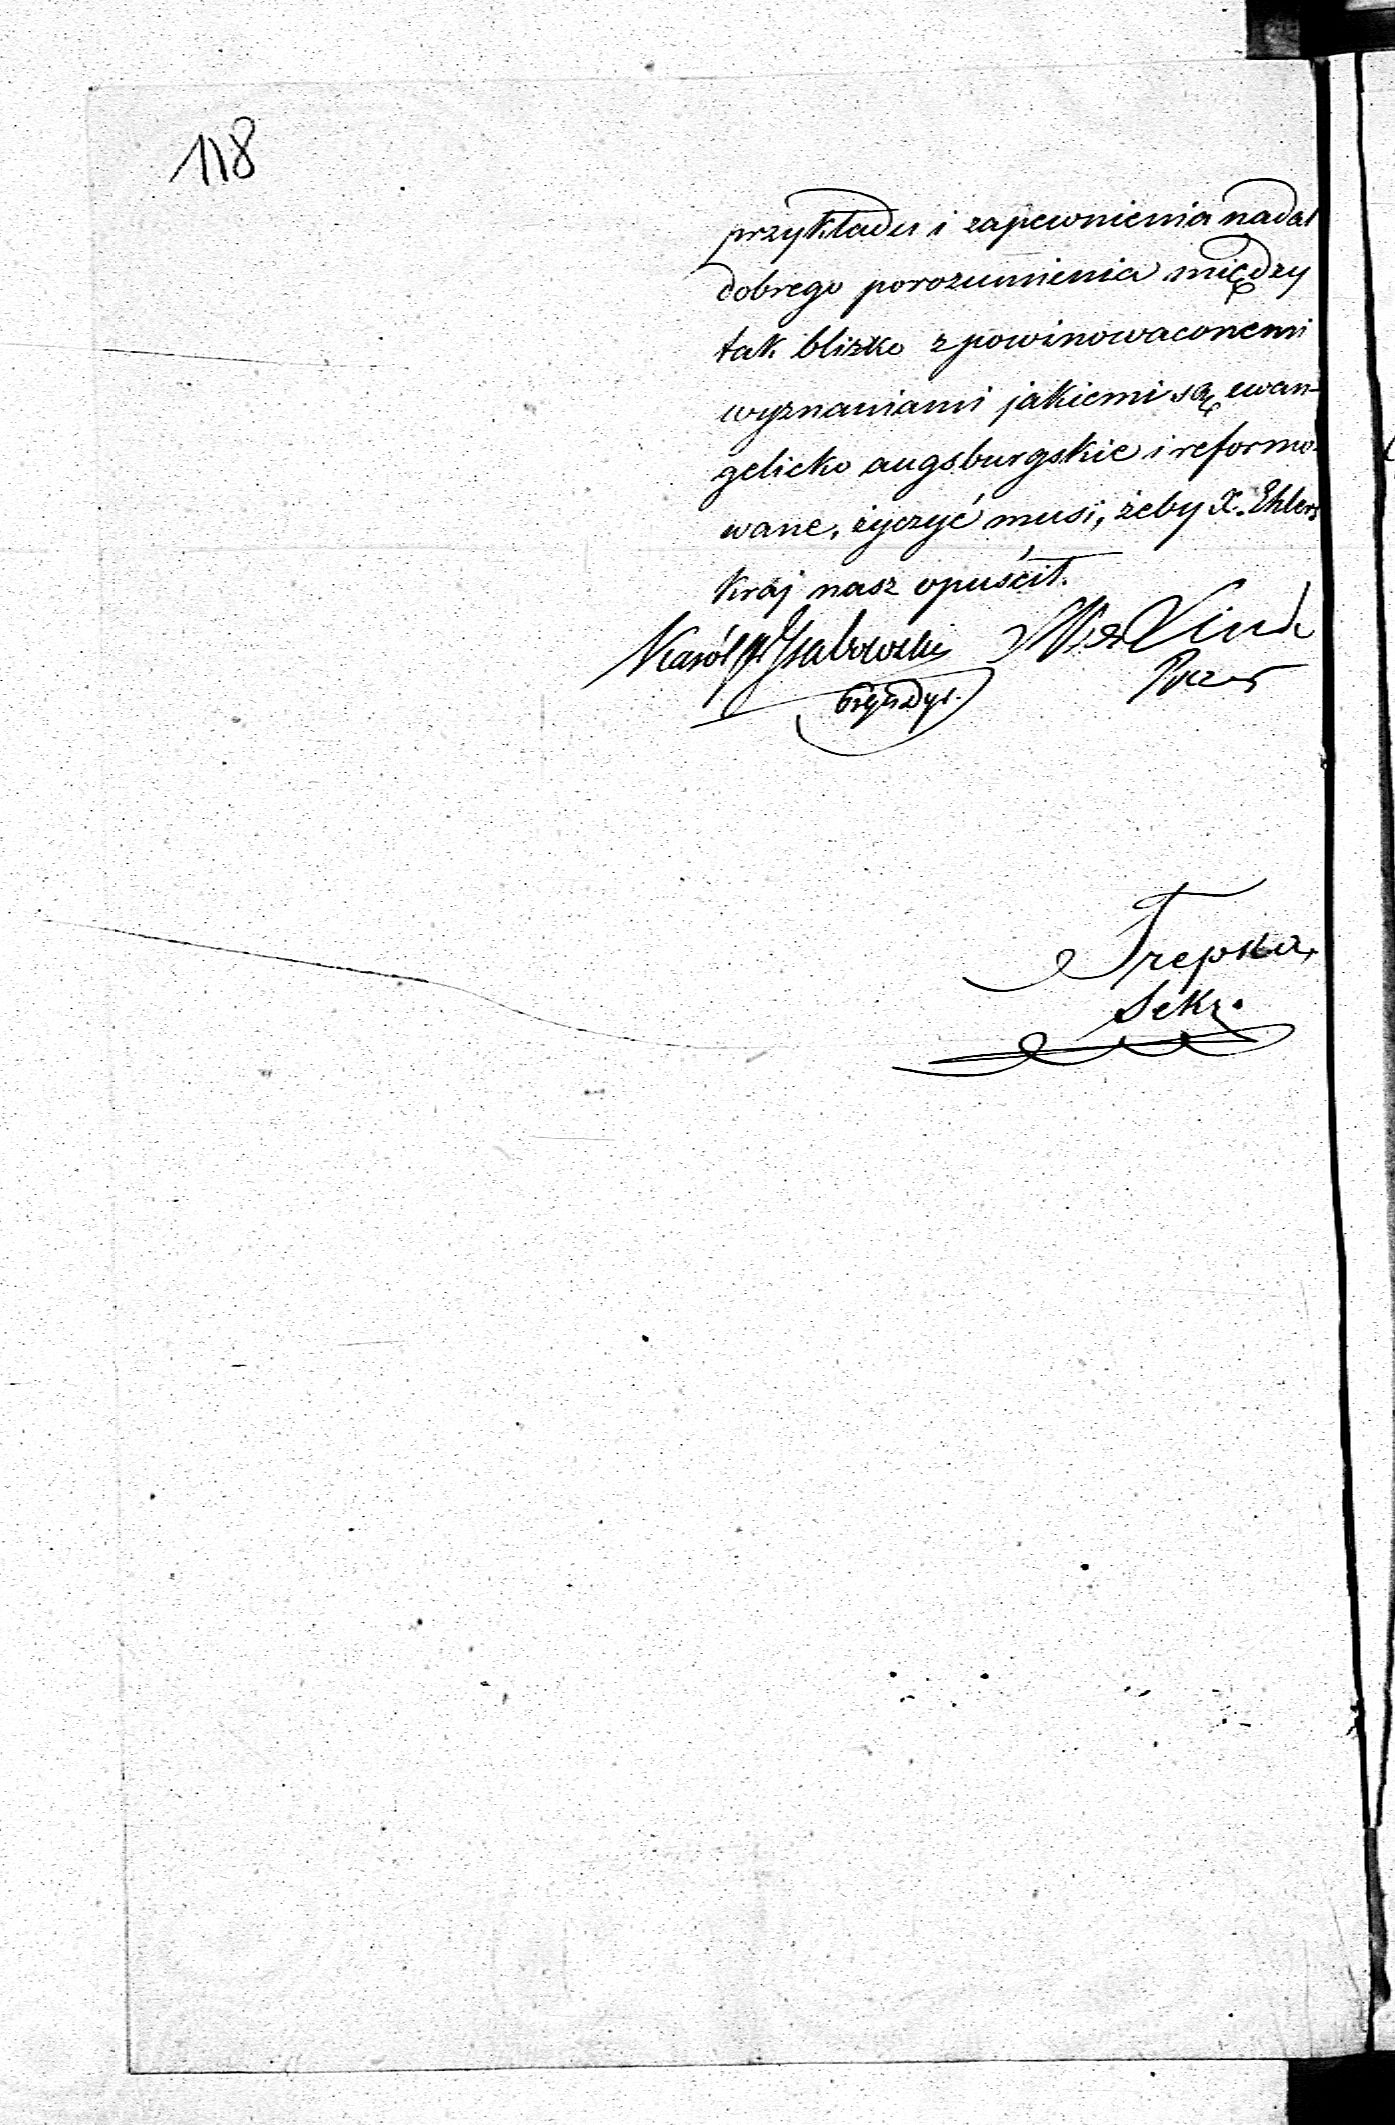 118
przykładu i zapewnienia nadal
dobrego porozumienia między
tak blizko zpowinowaconemi
wyznaniami jakiemi są ewan-
gelicko augsburgskie i reformo-
wane, życzyć musi, żeby X. Ehlers
kraj nasz opuścił.
Karól
Prezydyi.
Prezes
Trepka,
Sekr.